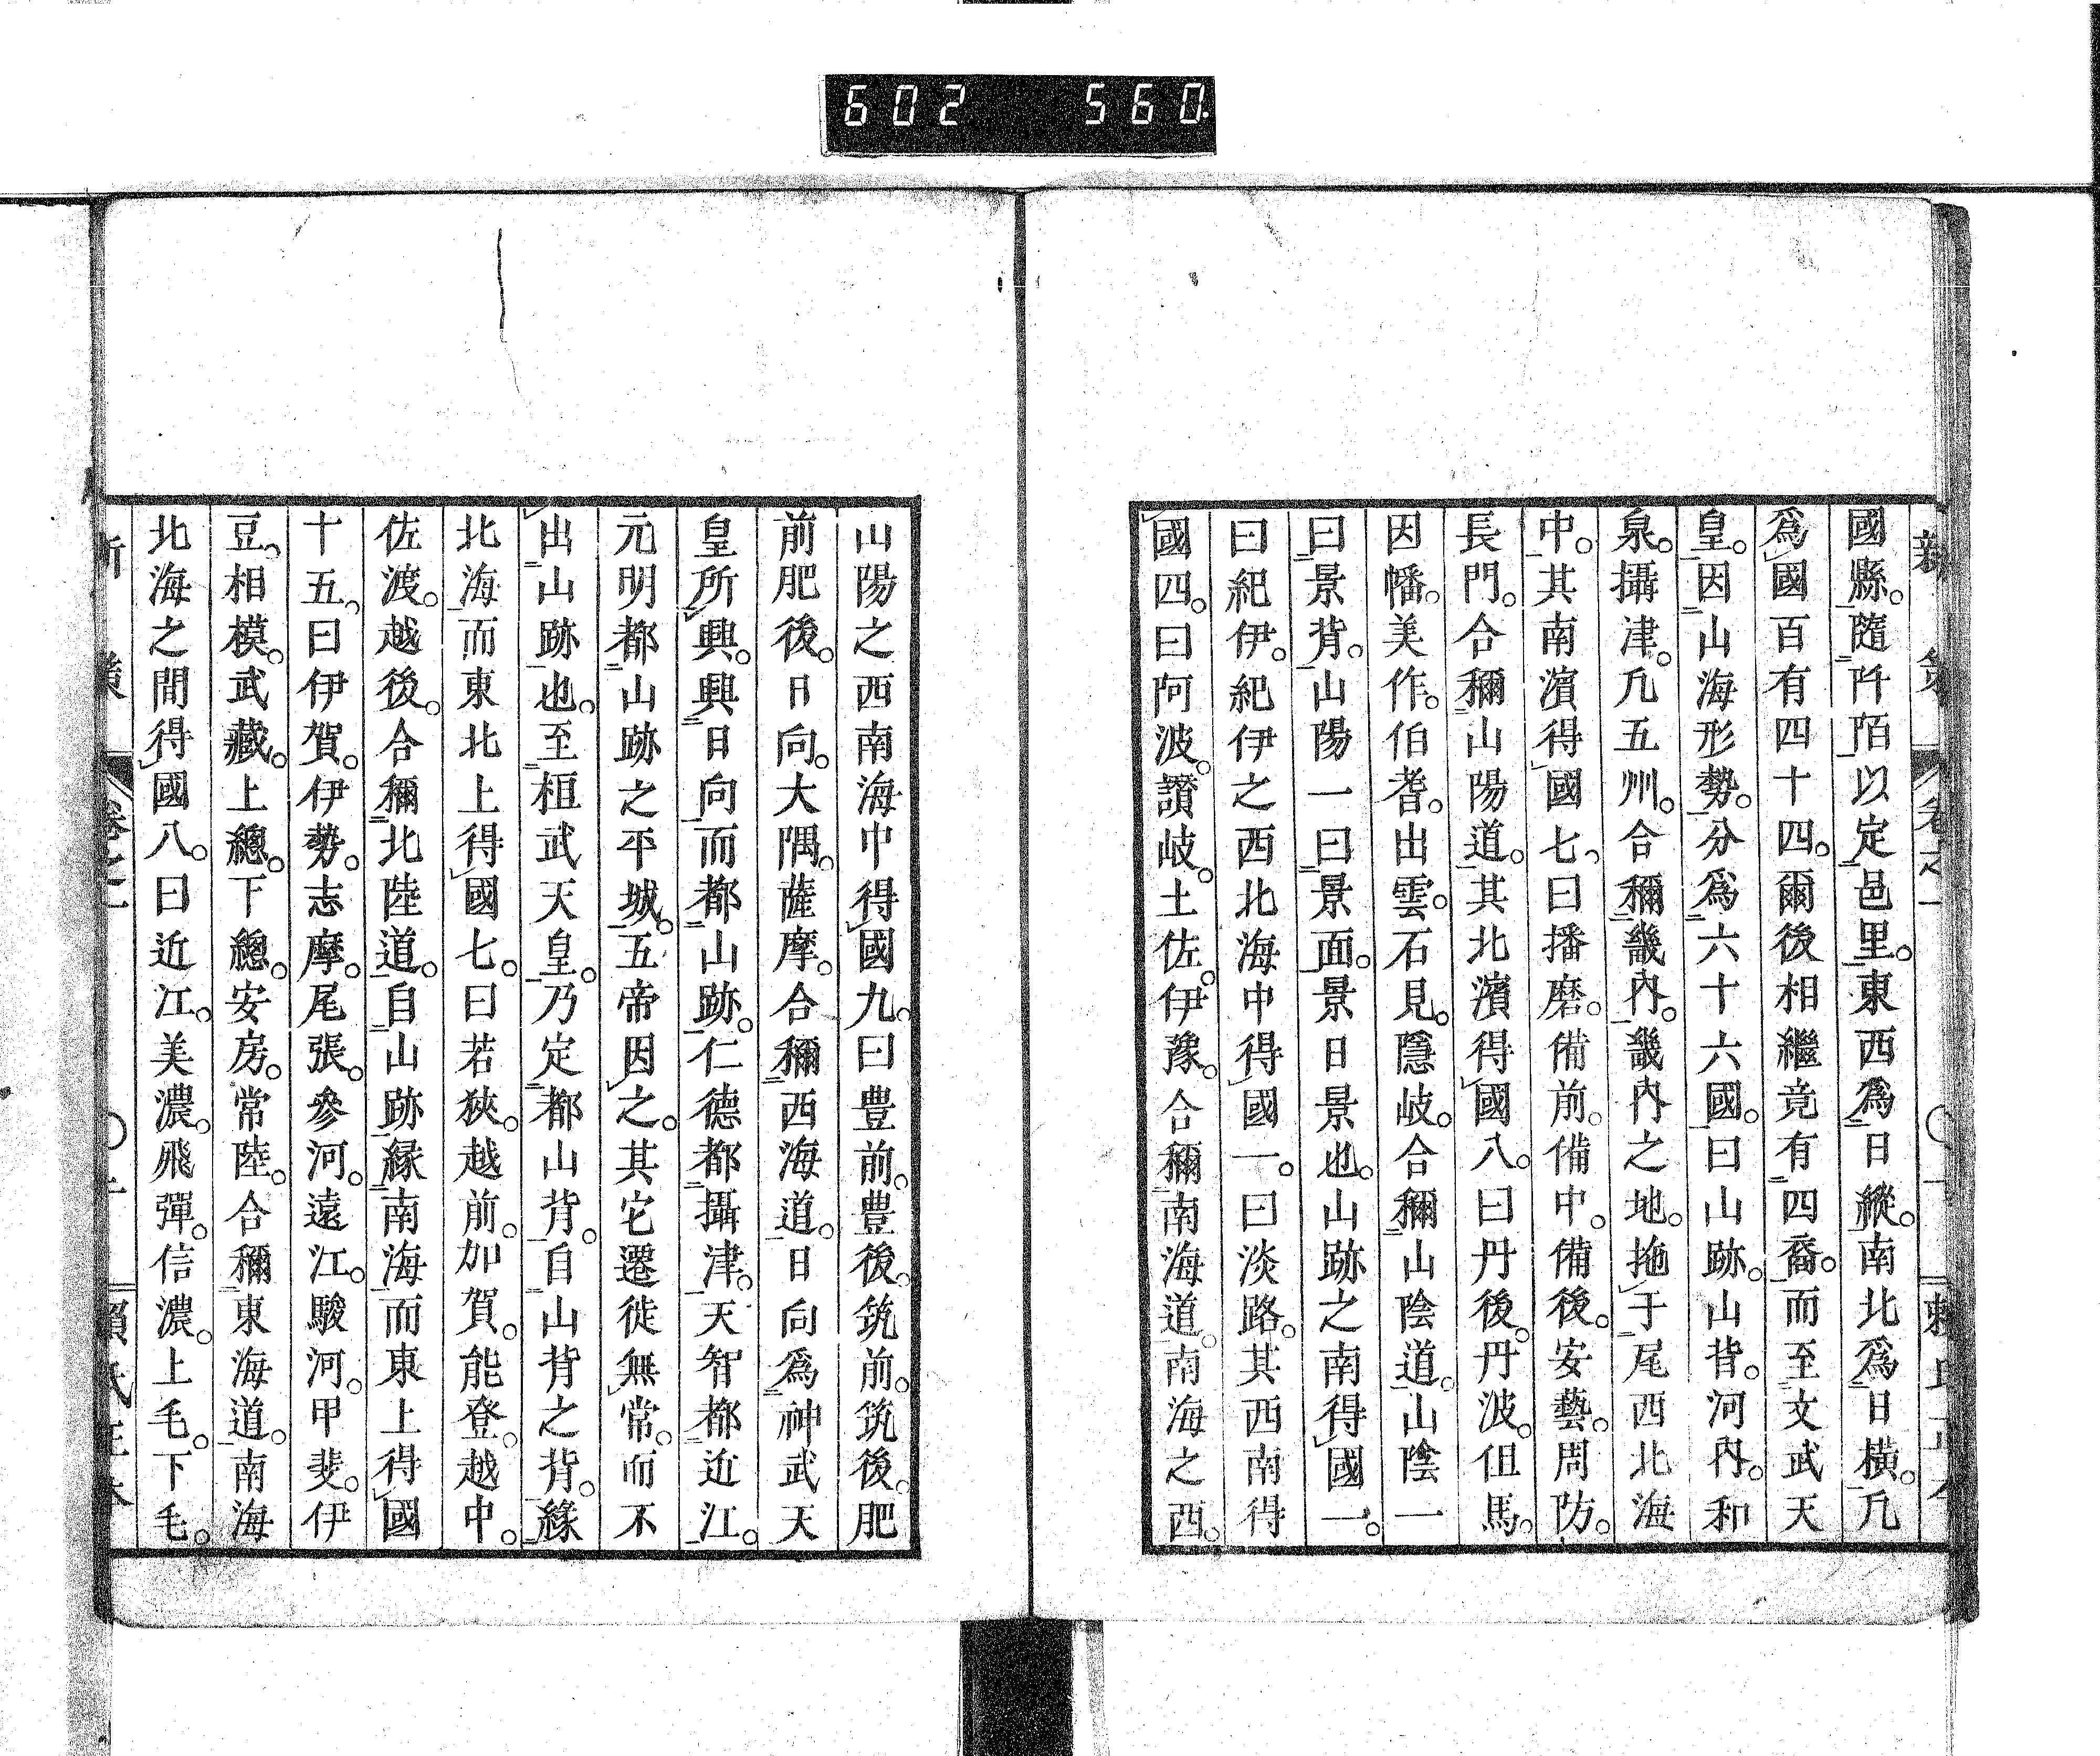 602 560
國縣。隨阡陌以定邑里。東西爲日縱。南北爲日橫。凡
爲國百有四十四。爾後相繼竟有四裔。而至文武天
皇。因山海形勢。分爲六十六國。曰山跡。山背。河內。和
泉。攝津。凡五州。合稱畿內。畿內之地。拖于尾西北海
中。其南濱得國七。曰播磨。備前。備中。備後。安藝。周防。
長門。合稱山陽道。其北濱得國八。曰丹後。丹波。但馬。
因幡。美作。伯耆。出雲。石見。隱岐。合稱山陰道。山陰一
曰景背。山陽一曰景面。景日景也。山跡之南得國一。
曰紀伊。紀伊之西北海中得國一。曰淡路。其西南得
國四。曰阿波。讚岐。土佐。伊豫。合稱南海道。南海之西。
山陽之西南海中得國九。曰豊前。豊後。筑前。筑後。肥
前肥後。日向。大隅。薩摩。合稱西海道。日向爲神武天
皇所興。興日向而都山跡。仁德都攝津。天智都近江。
元明都山跡之平城。五帝因之。其它遷徙無常。而不
出山跡也。至桓武天皇。乃定都山背。自山背之背。緣
北海而東北上得國七。曰若狹。越前。加賀。能登。越中。
佐渡。越後。合稱北陸道。自山跡緣南海而東上得國
十五。曰伊賀。伊勢。志摩。尾張。參河。遠江。駿河。甲斐。伊
豆。相模。武藏。上總。下總。安房。常陸。合稱東海道。南海
北海之間得國八。曰近江。美濃。飛彈。信濃。上毛。下毛。